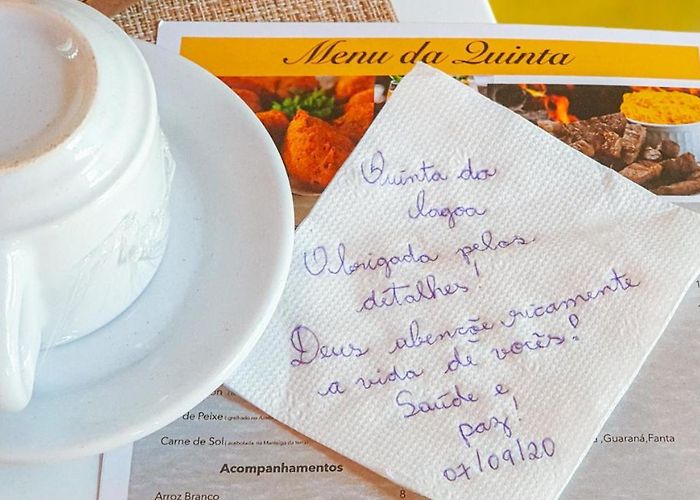 Menu da Quinta
Quinta da
lagoa
Obrigada pelos
detalhes!
Deus abençõe ricamente
a vida de vocês!
Saúde e
paz!
07/09/20
de Peixe
Carne de Sol (acebolada na Manteiga da terra)
,Guaraná,Fanta
Acompanhamentos
Arroz Branco
8